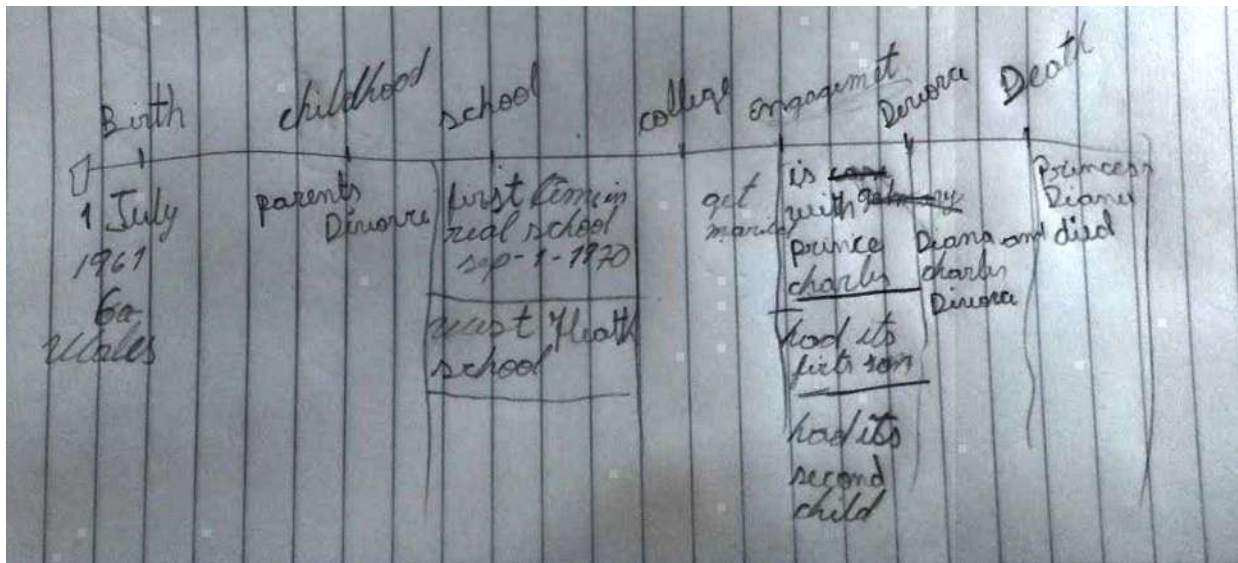 Birth
childhood
school
college
engagemet
Divorce
Death
1 July
1961
Wales
parents
Divorre
first time in
real school
sep-1-1970
west Heath
school
get
maried
is
with
prince
charles
had its
firts son
had its
second
child
Diana and
charles
Divorce
Princess
Diana
died